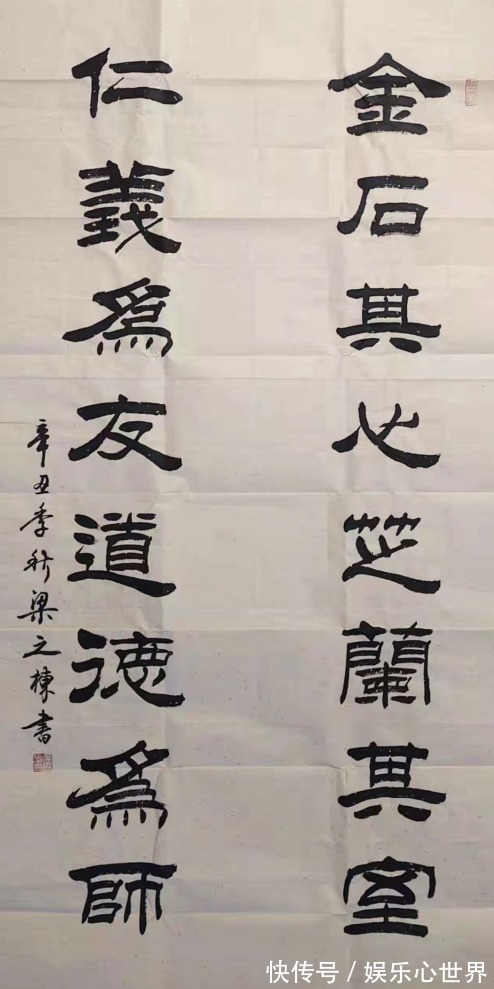 金石其心芝蘭其室
仁義爲友道德爲師
辛丑季秋梁之棟書
快传号/娱乐心世界